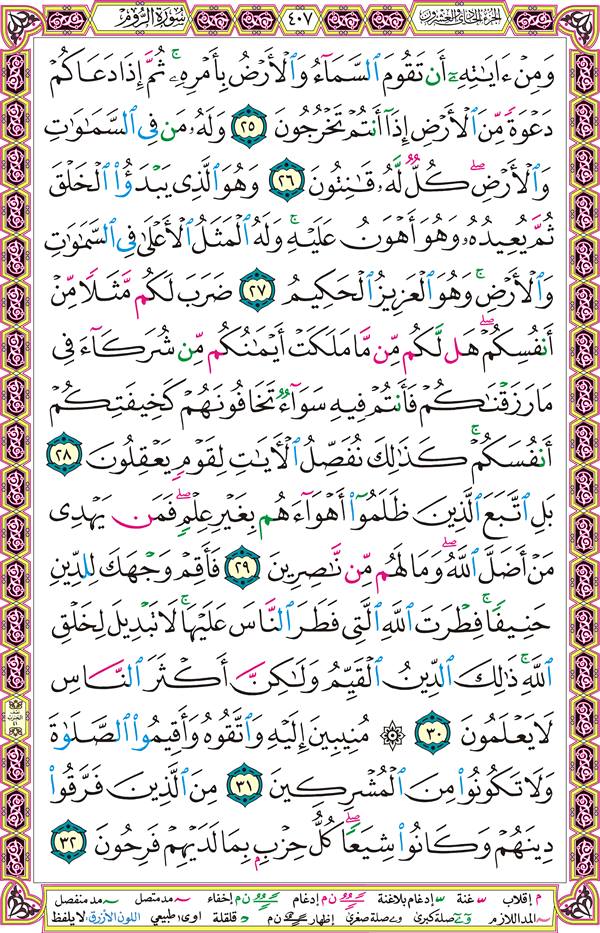 سورة الروم
٤٠٧
الجزء الحادي والعشرون
وَمِنْ ءَايَٰتِهِۦٓ أَن تَقُومَ ٱلسَّمَآءُ وَٱلْأَرْضُ بِأَمْرِهِۦ ۚ ثُمَّ إِذَا دَعَاكُمْ
دَعْوَةً مِّنَ ٱلْأَرْضِ إِذَآ أَنتُمْ تَخْرُجُونَ ٢٥ وَلَهُۥ مَن فِى ٱلسَّمَٰوَٰتِ
وَٱلْأَرْضِ ۖ كُلٌّ لَّهُۥ قَٰنِتُونَ ٢٦ وَهُوَ ٱلَّذِى يَبْدَؤُا۟ ٱلْخَلْقَ
ثُمَّ يُعِيدُهُۥ وَهُوَ أَهْوَنُ عَلَيْهِ ۚ وَلَهُ ٱلْمَثَلُ ٱلْأَعْلَىٰ فِى ٱلسَّمَٰوَٰتِ
وَٱلْأَرْضِ ۚ وَهُوَ ٱلْعَزِيزُ ٱلْحَكِيمُ ٢٧ ضَرَبَ لَكُم مَّثَلًا مِّنْ
أَنفُسِكُمْ ۖ هَل لَّكُم مِّن مَّا مَلَكَتْ أَيْمَٰنُكُم مِّن شُرَكَآءَ فِى
مَا رَزَقْنَٰكُمْ فَأَنتُمْ فِيهِ سَوَآءٌ تَخَافُونَهُمْ كَخِيفَتِكُمْ
أَنفُسَكُمْ ۚ كَذَٰلِكَ نُفَصِّلُ ٱلْءَايَٰتِ لِقَوْمٍ يَعْقِلُونَ ٢٨
بَلِ ٱتَّبَعَ ٱلَّذِينَ ظَلَمُوٓا۟ أَهْوَآءَهُم بِغَيْرِ عِلْمٍ ۖ فَمَن يَهْدِى
مَنْ أَضَلَّ ٱللَّهُ ۖ وَمَا لَهُم مِّن نَّٰصِرِينَ ٢٩ فَأَقِمْ وَجْهَكَ لِلدِّينِ
حَنِيفًا ۚ فِطْرَتَ ٱللَّهِ ٱلَّتِى فَطَرَ ٱلنَّاسَ عَلَيْهَا ۚ لَا تَبْدِيلَ لِخَلْقِ
ٱللَّهِ ۚ ذَٰلِكَ ٱلدِّينُ ٱلْقَيِّمُ وَلَٰكِنَّ أَكْثَرَ ٱلنَّاسِ
لَا يَعْلَمُونَ ٣٠ ۞ مُنِيبِينَ إِلَيْهِ وَٱتَّقُوهُ وَأَقِيمُوا۟ ٱلصَّلَوٰةَ
وَلَا تَكُونُوا۟ مِنَ ٱلْمُشْرِكِينَ ٣١ مِنَ ٱلَّذِينَ فَرَّقُوا۟
دِينَهُمْ وَكَانُوا۟ شِيَعًا ۖ كُلُّ حِزْبٍۭ بِمَا لَدَيْهِمْ فَرِحُونَ ٣٢
م إقلاب غنة إدغام بلاغنة ن م إدغام ن م إخفاء مد متصل مد منفصل
المد اللازم صلة كبرى صلة صغرى إظهار ن م قلقلة اوى: طبيعي اللون الأزرق: لا يلفظ